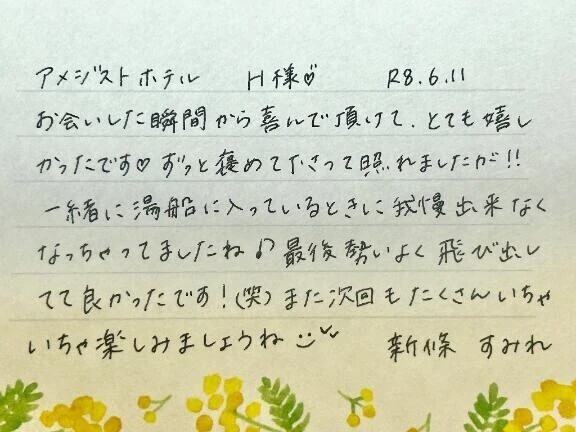 アメジストホテル H様♡ R8.6.11
お会いした瞬間から喜んで頂けて、とても嬉し
かったです♡ずっと褒めて下さって照れましたが!!
一緒に湯船に入っているときに我慢出来なく
なっちゃってましたね♪最後勢いよく飛び出し
てて良かったです!(笑)また次回もたくさんいちゃ
いちゃ楽しみましょうね 新條 すみれ